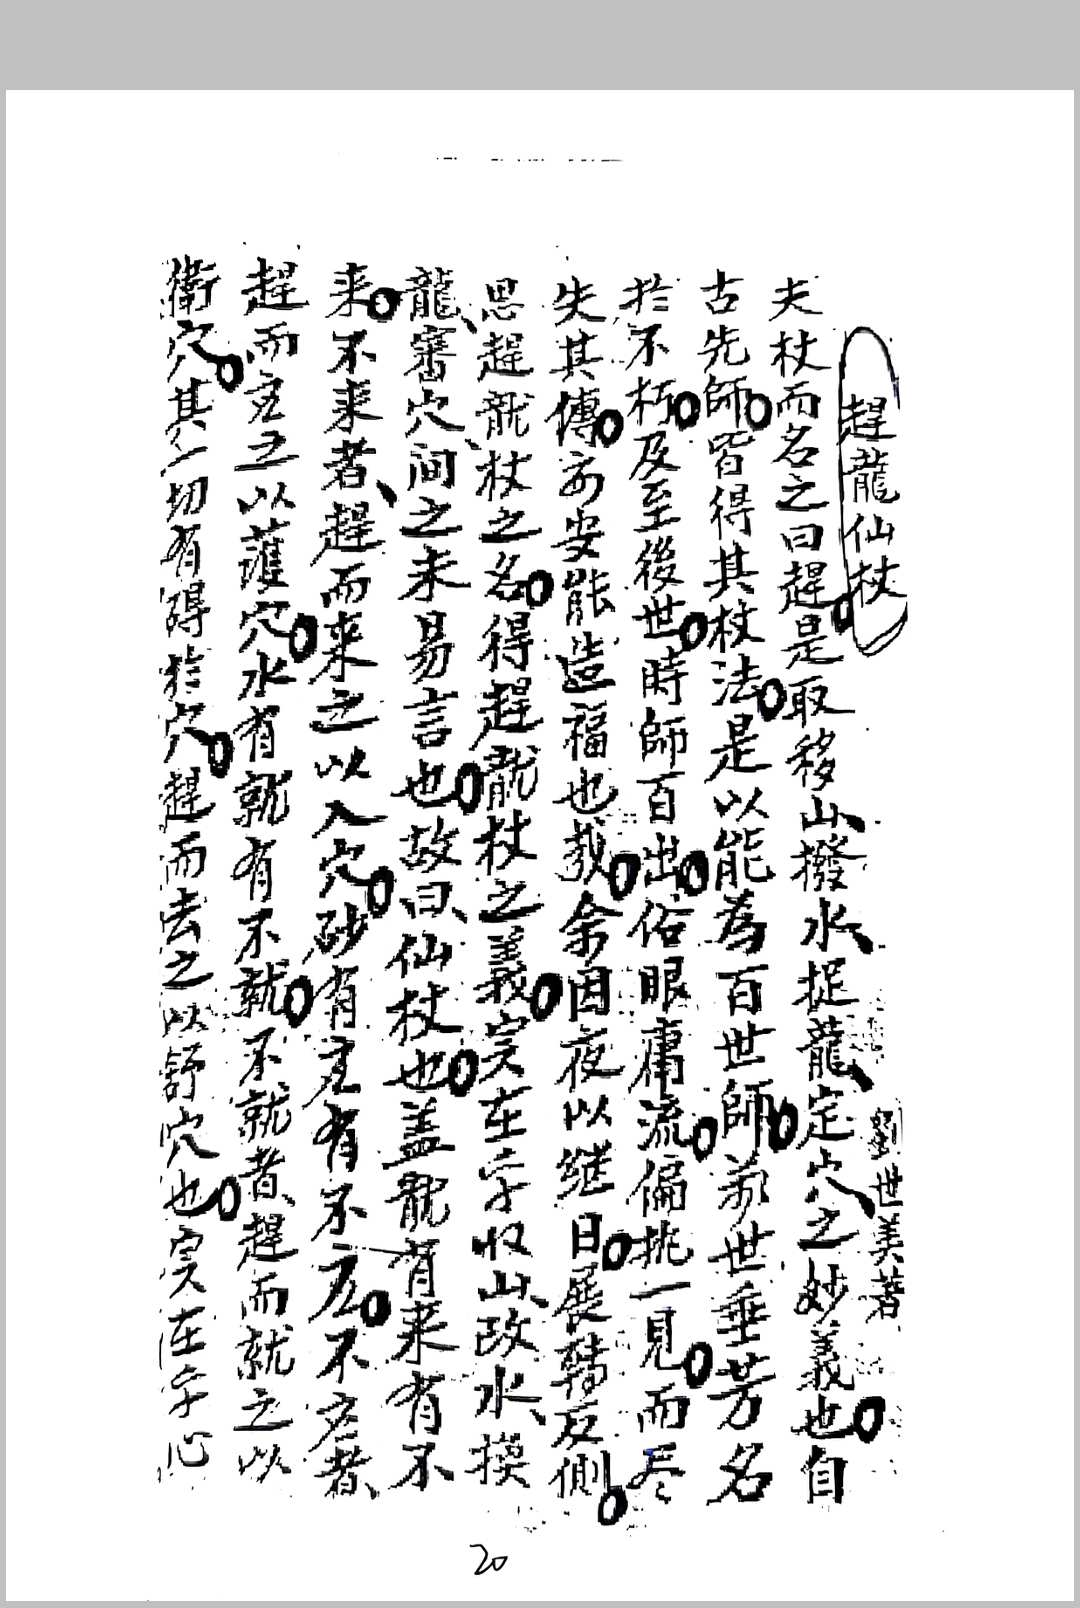 趕龍仙杖
劉世美著
夫杖而名之曰趕。是取移山、撥水、捉龍、定穴、之妙義也。自
古先師。皆得其杖法。是以能為百世師。萬世垂芳名
於不朽。及至後世。時師百出。俗眼庸流。偏執一見。而尽
失其傳。安能造福也哉。余因夜以继日。展轉反側。
思趕龍杖之名。得趕龍杖之義。实在乎收山、改水、摸
龍、審穴、间之未易言也。故曰、仙杖也。盖龍有来有不
来。不来者、趕而来之以入穴。砂有克有不克。不克者、
趕而克之以護穴。水有就有不就。不就者、趕而就之以
衛穴。其一切有碍於穴。趕而去之以舒穴也。实在乎心
20